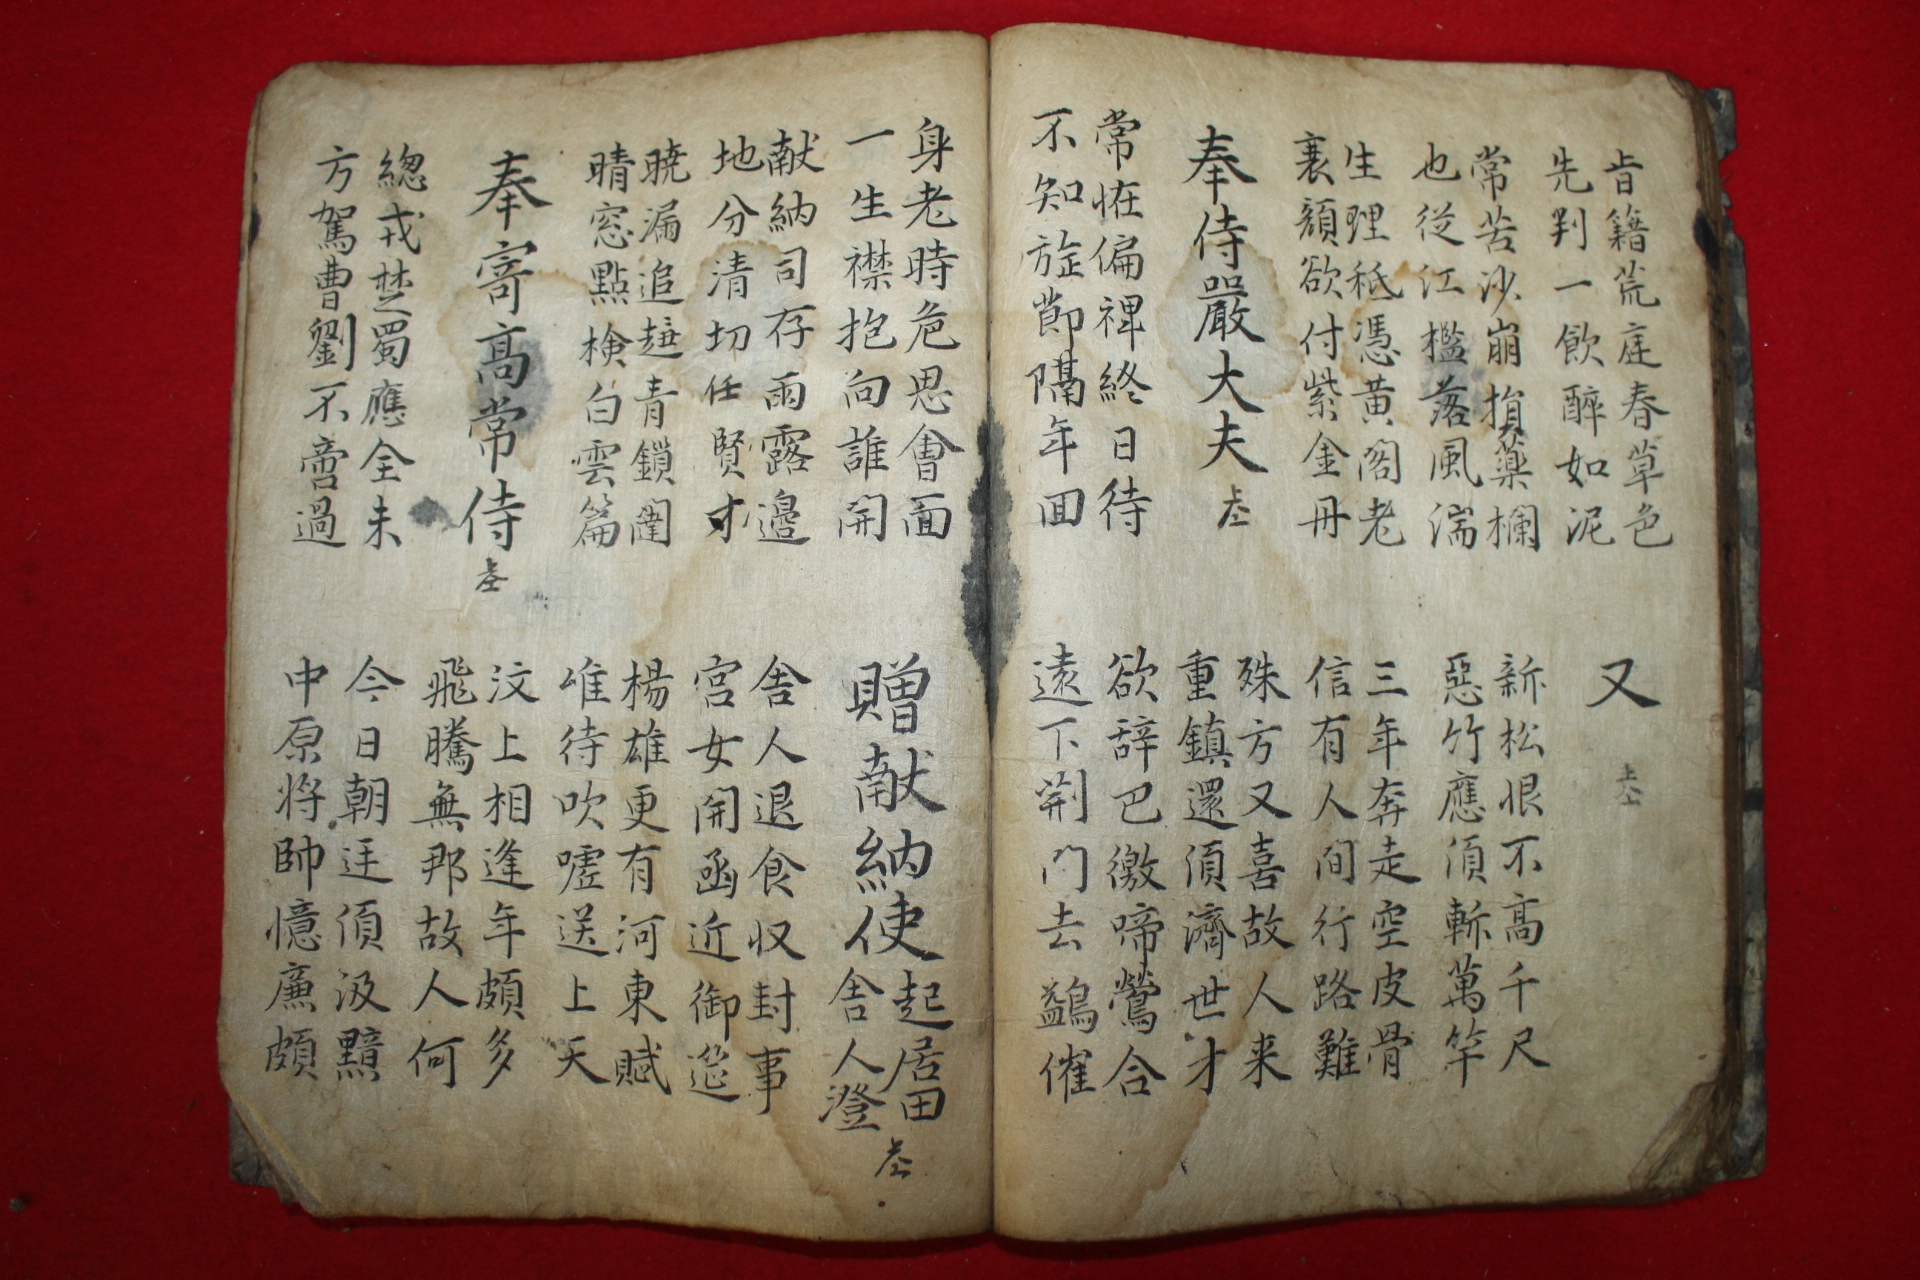 肯籍荒庭春草色
先判一飲醉如泥
又
常苦沙崩損藥欄
也從江檻落風湍
新松恨不高千尺
惡竹應須斬萬竿
生理秖憑黄閣老
衰顔欲付紫金丹
三年奔走空皮骨
信有人間行路難
奉侍嚴大夫
殊方又喜故人来
重鎮還須濟世才
常恠偏裨終日待
不知旌節隔年回
欲辞巴徼啼鶯合
遠下荆門去鷁催
身老時危思會面
一生襟抱向誰開
贈献納使起居田
舎人澄
献納司存雨露邉
地分清切任賢才
舎人退食収封事
宮女開函近御筵
暁漏追趍青鎖闥
晴窓點検白雲篇
楊雄更有河東賦
唯待吹嘘送上天
奉寄高常侍
汶上相逢年頗多
飛騰無那故人何
總戎楚蜀應全未
方駕曹劉不啻過
今日朝廷須汲黯
中原将帥憶廉頗